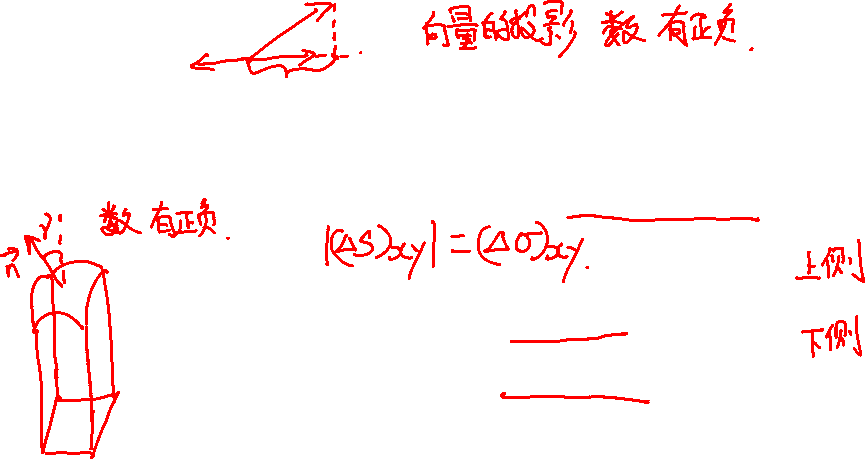 向量的投影 数 有正负.
数 有正负.
γ
n⃗
|(ΔS)xy| = (Δσ)xy.
上侧
下侧